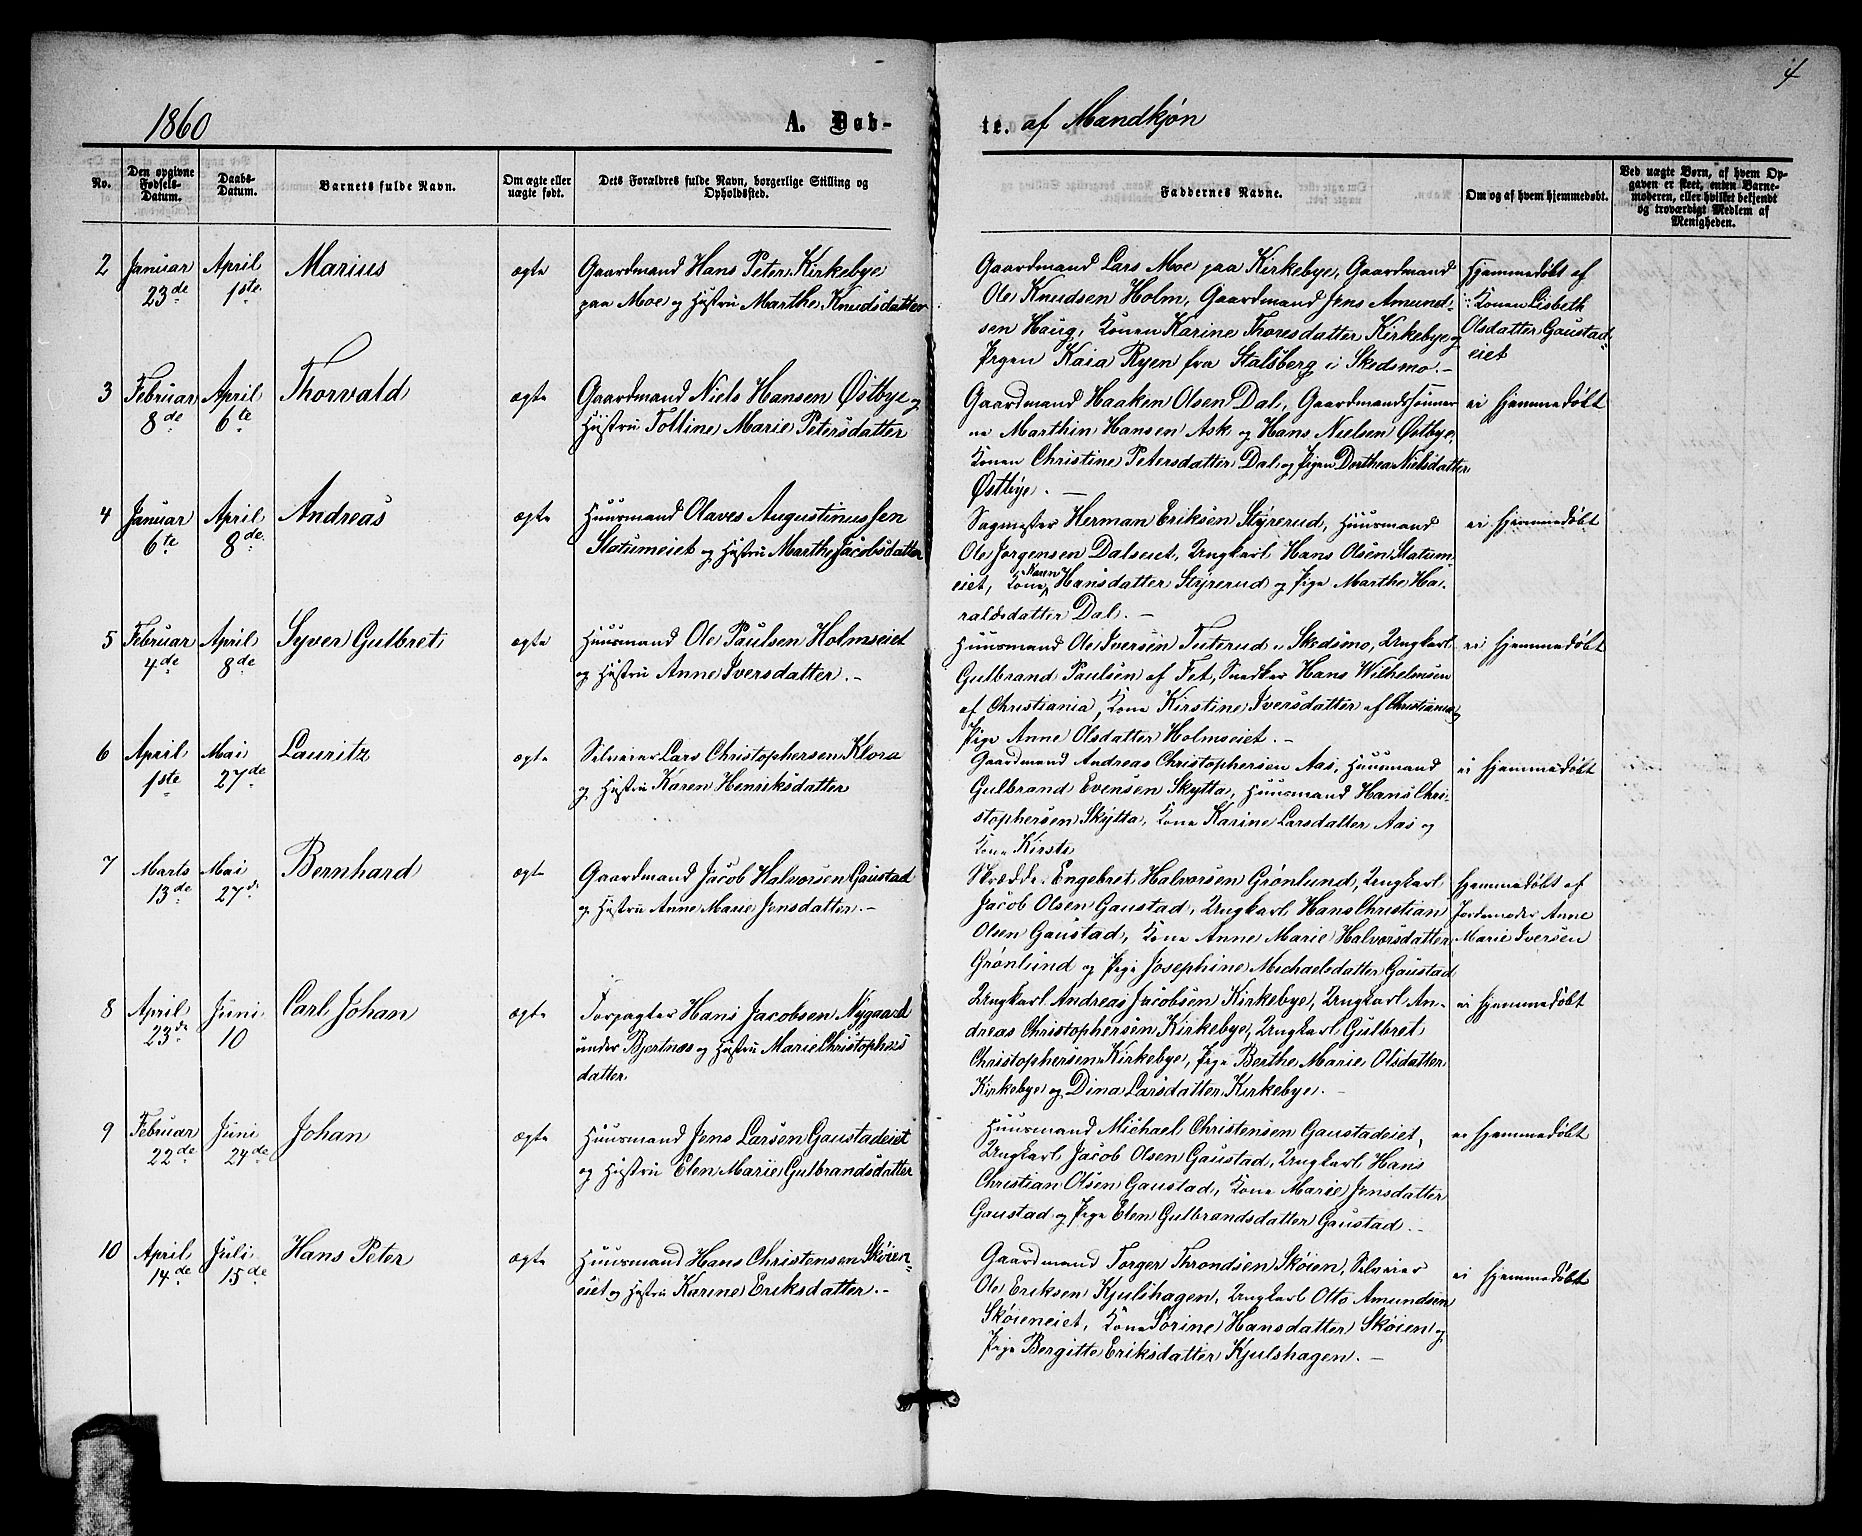 4
1860
A. Døb-
te. af Mandkjøn
No.
Den opgivne
Fødsels-
Datum.
Daabs-
Datum.
Barnets fulde Navn.
Om ægte eller
uægte født.
Dets Forældres fulde Navn, borgerlige Stilling og
Opholdssted.
Faddernes Navne.
Om og af hvem hjemmedøbt.
Ved uægte Børn, af hvem Op-
gaven er skeet, enten Barne-
moderen, eller hvilket bekjendt
og troværdigt Medlem af
Menigheden.
2
Januar
23de
April
1ste
Marius
ægte
Gaardmand Hans Peter Kirkebye
paa Moe og Hustru Marthe Knudsdatter
Gaardmand Lars Moe paa Kirkebye, Gaardmand
Ole Knudsen Holm, Gaardmand Jens Amund-
sen Haug, Konen Karine Thoresdatter Kirkebye og
Pigen Kaia Ryen fra Stalsberg i Skedsmo.-
Hjemmedøbt af
Konen Lisbeth
Olsdatter Gaustad-
eiet
3
Februar
8de
April
6te
Thorvald
ægte
Gaardmand Niels Hansen Østbye og
Hustru Tolline Marie Petersdatter
Gaardmand Haaken Olsen Dal, Gaardmandssønner-
ne Marthin Hansen Ask og Hans Nielsen Østbye,
Konen Christine Petersdatter Dal og Pigen Dorthea Nielsdatter
Østbye.-
ei hjemmedøbt
4
Januar
6te
April
8de
Andreas
ægte
Huusmand Olaves Augustinussen
Statumeiet og Hustru Marthe Jacobsdatter
Sagmester Herman Eriksen Styrerud, Huusmand
Ole Jørgensen Dalseiet, Ungkarl Hans Olsen Statum-
eiet, Kone Karen Hansdatter Styrerud og Pige Marthe Ha-
raldsdatter Dal.-
ei hjemmedøbt
5
Februar
4de
April
8de
Syver Gulbret
ægte
Huusmand Ole Paulsen Holmseiet
og Hustru Anne Iversdatter.-
Huusmand Ole Iversen Tuterud i Skedsmo, Ungkarl
Gulbrand Paulsen af Fet, Snedker Hans Wilhelmsen
af Christiania, Kone Kirstine Iversdatter af Christiania og
Pige Anne Olsdatter Holmseiet.-
ei hjemmedøbt
6
April
1ste
Mai
27de
Lauritz
ægte
Selveier Lars Christophersen Klora
og Hustru Karen Henriksdatter
Gaardmand Andreas Christophersen Aas, Huusmand
Gulbrand Evensen Skytta, Huusmand Hans Chri-
stophersen Skytta, Kone Karine Larsdatter Aas og
Kone Kirsti
ei hjemmedøbt
7
Marts
13de
Mai
27de
Bernhard
ægte
Gaardmand Jacob Halvorsen Gaustad
og Hustru Anne Marie Jensdatter.-
Skrædder Engebret Halvorsen Grønlund, Ungkarl
Jacob Olsen Gaustad, Ungkarl Hans Christian
Olsen Gaustad, Kone Anne Marie Halvorsdatter
Grønlund og Pige Josephine Michaelsdatter Gaustad
hjemmedøbt af
Jordemoder Anne
Marie Iversen
8
April
23de
Juni
10
Carl Johan
ægte
Forpagter Hans Jacobsen Nygaard
under Bjertnæs og Hustru Marie Christophers
datter
Ungkarl Andreas Jacobsen Kirkebye, Ungkarl An-
dreas Christophersen Kirkebye, Ungkarl Gulbret
Christophersen Kirkebye, Pige Berthe Marie Olsdatter
Kirkebye og Dina Larsdatter Kirkebye.-
ei hjemmedøbt
9
Februar
22de
Juni
24de
Johan
ægte
Huusmand Jens Larsen Gaustadeiet
og Hustru Elen Marie Gulbrandsdatter
Huusmand Michael Christensen Gaustadeiet,
Ungkarl Jacob Olsen Gaustad, Ungkarl Hans
Christian Olsen Gaustad, Kone Marie Jensdatter
Gaustad og Pige Elen Gulbrandsdatter Gaustad.-
ei hjemmedøbt
10
April
14de
Juli
15de
Hans Peter
ægte
Huusmand Hans Christensen Skøien-
eiet og Hustru Karine Eriksdatter.-
Gaardmand Torger Throndsen Skøien, Selveier
Ole Eriksen Kjulshagen, Ungkarl Otto Amundsen
Skøieneiet, Kone Sørine Hansdatter Skøien og
Pige Bergitte Eriksdatter Kjulshagen.-
ei hjemmedøbt